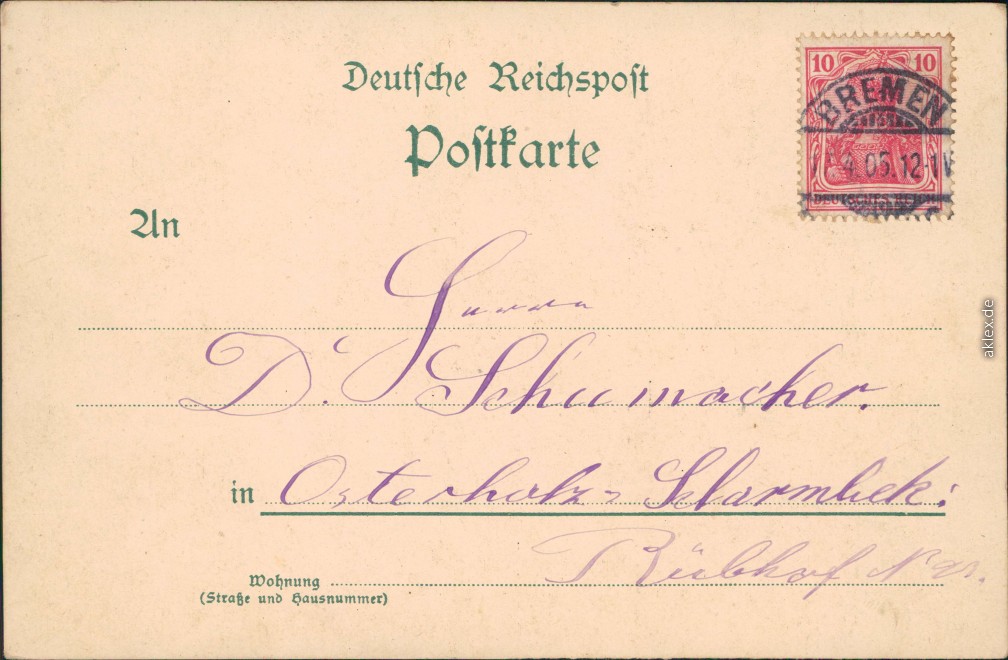 Deutsche Reichspost
Postkarte
10 10
BREMEN
4.05.12-1V
DEUTSCHES REICH
An
Herrn
D. Schumacher.
in Osterholz-Scharmbek:
Rübhof
Wohnung
(Straße und Hausnummer)
aklex.de